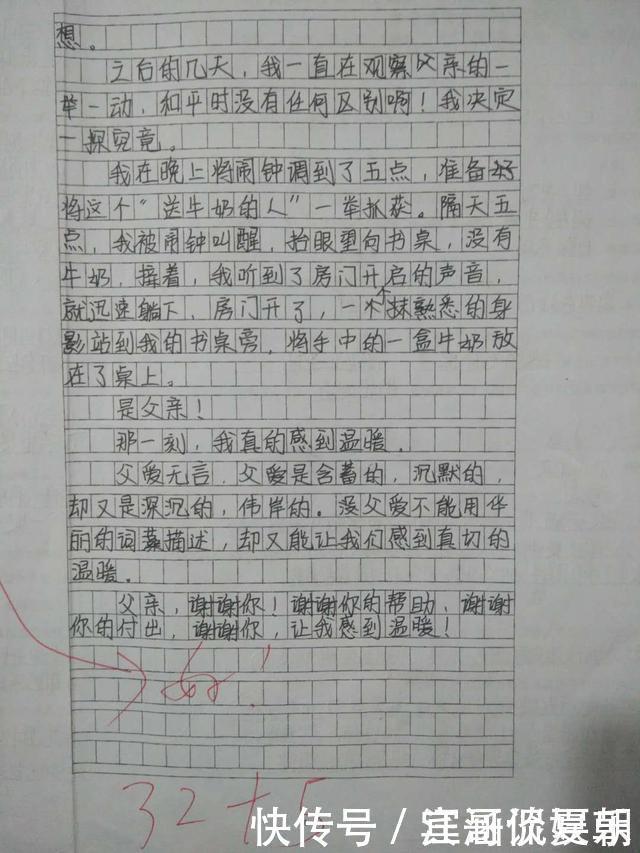 想。
之后的几天，我一直在观察父亲的一
举一动，和平时没有任何区别啊！我决定
一探究竟。
我在晚上将闹钟调到了五点，准备好
将这个“送牛奶的人”一举抓获。隔天五
点，我被闹钟叫醒，抬眼望向书桌，没有
牛奶，接着，我听到了房门开启的声音，
就迅速躺下，房门开了，一个抹熟悉的身
影站到我的书桌旁，将手中的一盒牛奶放
在了桌上。
是父亲！
那一刻，我真的感到温暖．
父爱无言，父爱是含蓄的，沉默的，
却又是深沉的，伟岸的。没父爱不能用华
丽的词藻描述，却又能让我们感到真切的
温暖。
父亲，谢谢你！谢谢你的帮助，谢谢
你的付出，谢谢你，让我感到温暖！
好！
32+5
快传号／汪哥谈娱